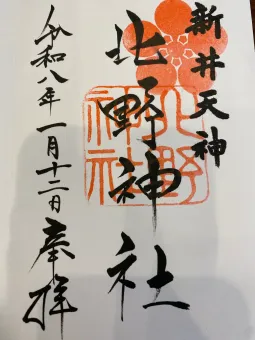 新井天神
北野神社
北野
神社
令和八年一月十二日 奉拝